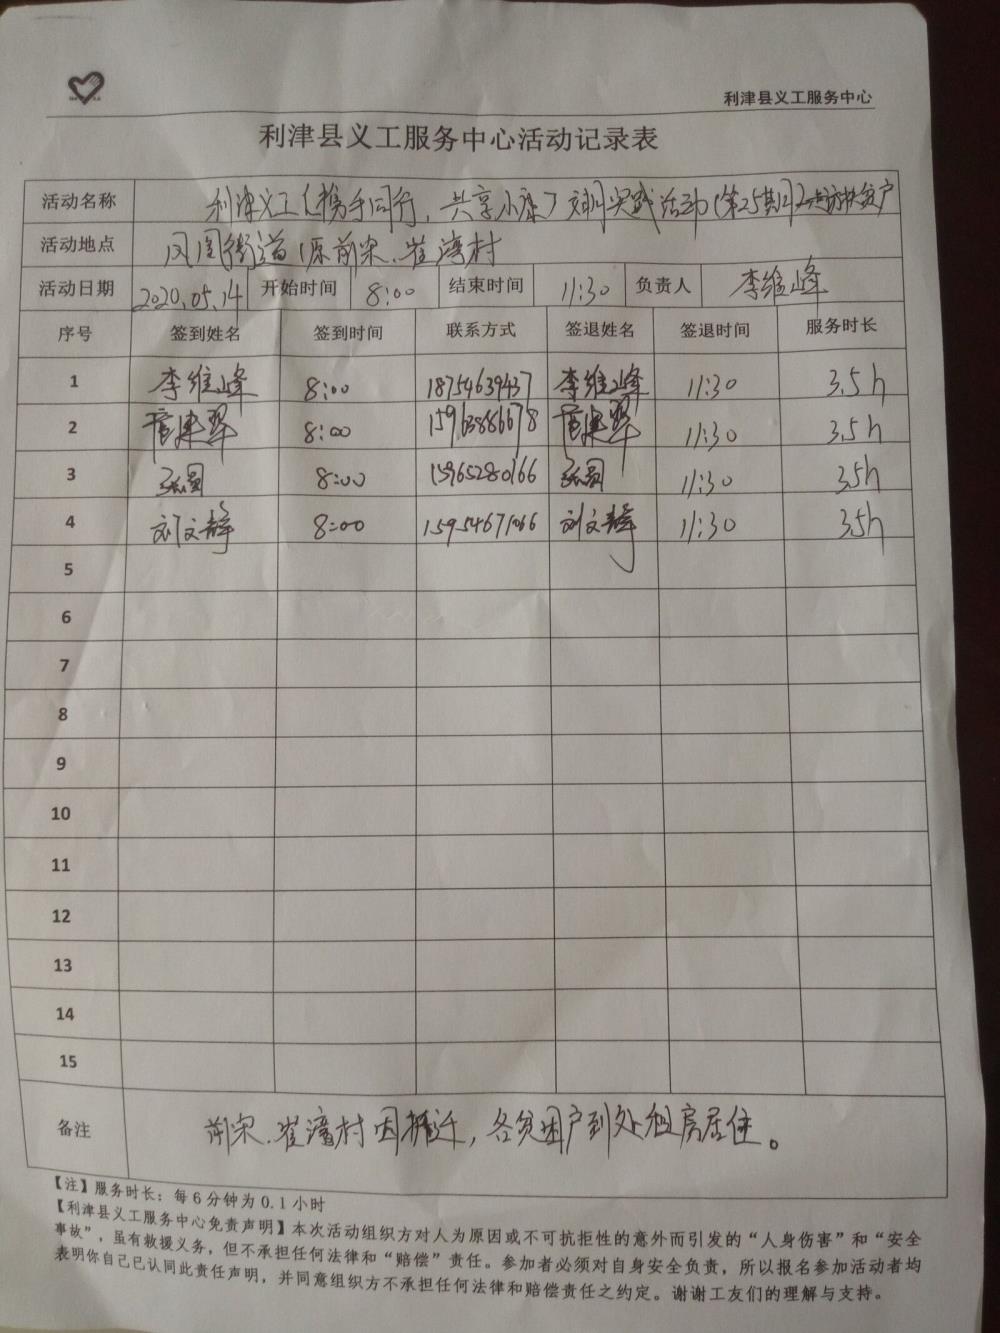 利津县义工服务中心
利津县义工服务中心活动记录表
活动名称 利津义工《携手同行，共享小康》文明实践活动(第25期)走访扶贫户
活动地点 凤凰街道(原前宋、崔湾村
活动日期 2020.05.14 开始时间 8:00 结束时间 11:30 负责人 李维峰
序号 签到姓名 签到时间 联系方式 签退姓名 签退时间 服务时长
1 李维峰 8:00 18754639437 李维峰 11:30 3.5h
2 8:00 15963886678 11:30 3.5h
3 张圆 8:00 15965280166 张圆 11:30 3.5h
4 刘文静 8:00 15954671066 刘文静 11:30 3.5h
5
6
7
8
9
10
11
12
13
14
15
备注 前宋、崔湾村因搬迁，各贫困户到处租房居住。
【注】服务时长：每6分钟为0.1小时
【利津县义工服务中心免责声明】本次活动组织方对人为原因或不可抗拒性的意外而引发的“人身伤害”和“安全
事故”，虽有救援义务，但不承担任何法律和“赔偿”责任。参加者必须对自身安全负责，所以报名参加活动者均
表明你自己已认同此责任声明，并同意组织方不承担任何法律和赔偿责任之约定。谢谢工友们的理解与支持。